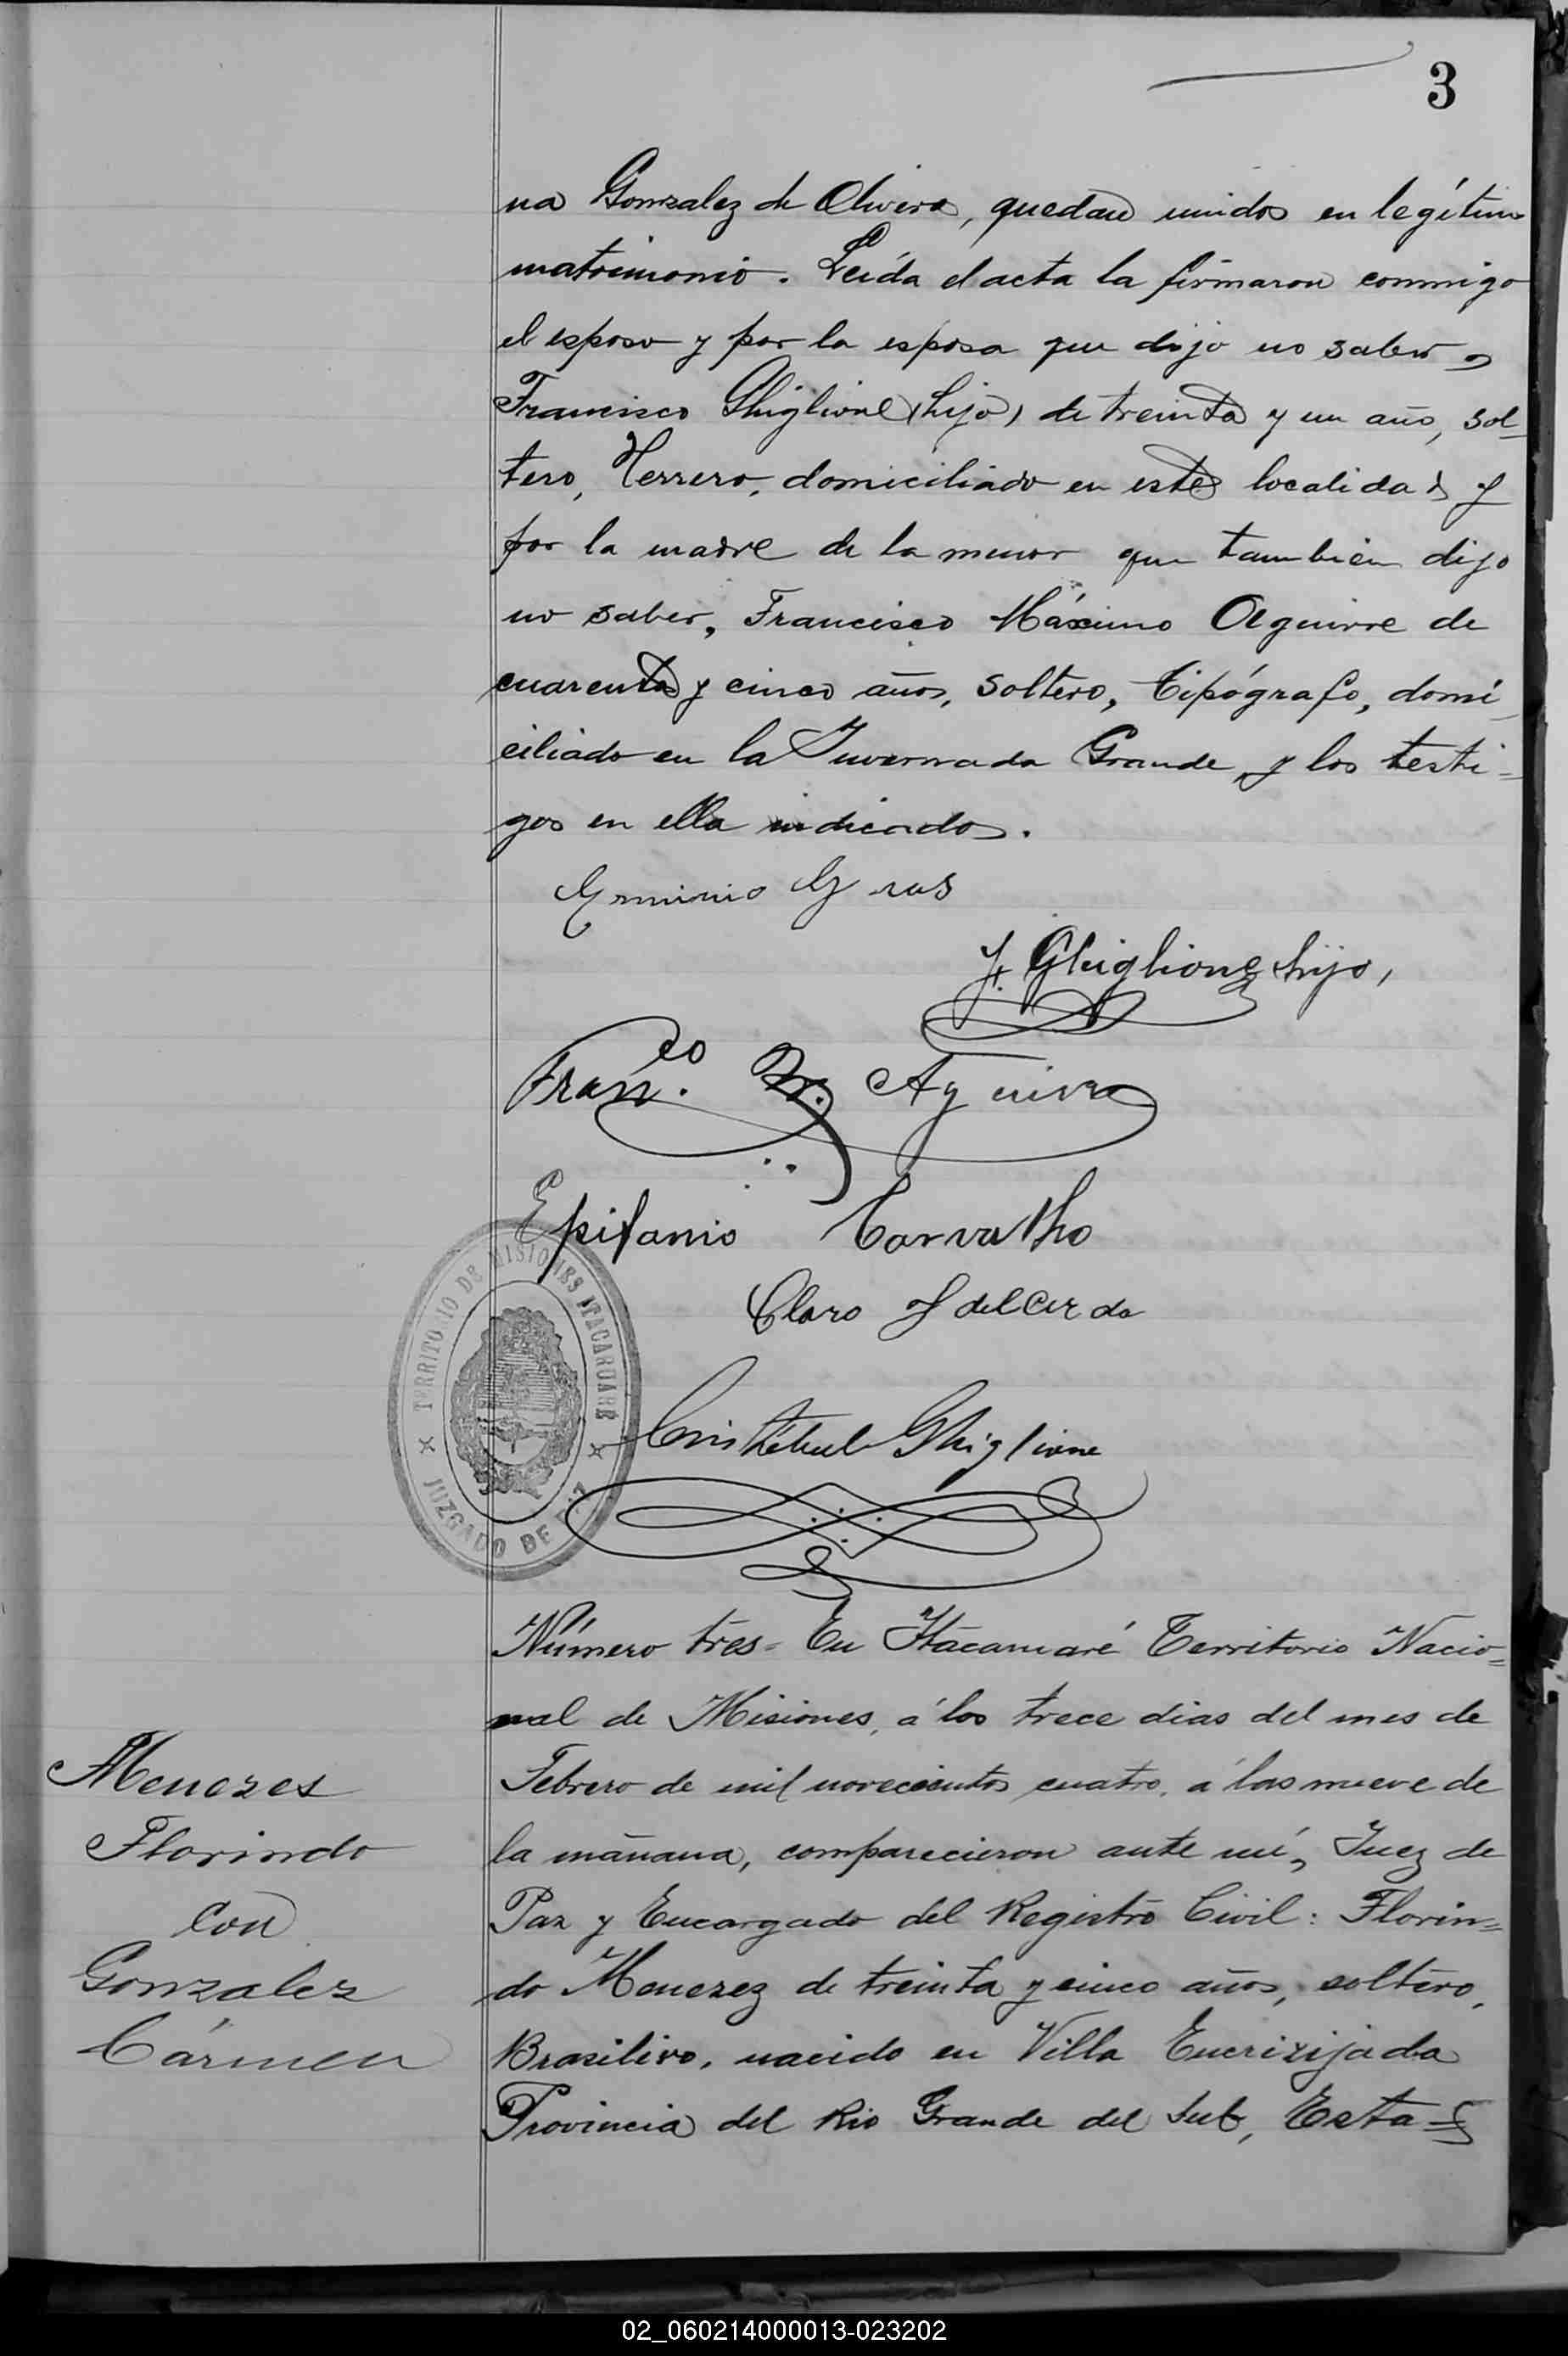 3
na Gonzalez de Olivera, quedan unidos en legítimo
matrimonio. Leída el acta la firmaron conmigo
el esposo y por la esposa que dijo no saber,
Francisco Ghiglione (hijo) de treinta y un año, sol-
tero, Herrero, domiciliado en esta localidad y
por la madre de la menor que también dijo
no saber, Francisco Máximo Aguirre de
cuarenta y cinco años, soltero, Tipógrafo, domi-
ciliado en la Invernada Grande, y los testi=
gos en ella indicados.
F. Ghiglione hijo,
Franco. M. Aguirre
Epifanio Carvalho
Claro
TERRITORIO DE MISIONES ITACARUARÉ
JUZGADO DE PAZ
Cristóbal Ghiglione
Número tres= En Itacaruaré Territorio Nacio=
nal de Misiones, á los trece dias del mes de
Febrero de mil novecientos cuatro, á las nueve de
la mañana, comparecieron ante mí, Juez de
Paz y Encargado del Registro Civil: Florin=
do Menezez de treinta y cinco años, soltero,
Brasilero, nacido en Villa Encrizijada
Provincia del Rio Grande del Sub, Esta=
Menezes
Florindo
con
Gonzalez
Cármen
02_060214000013-023202